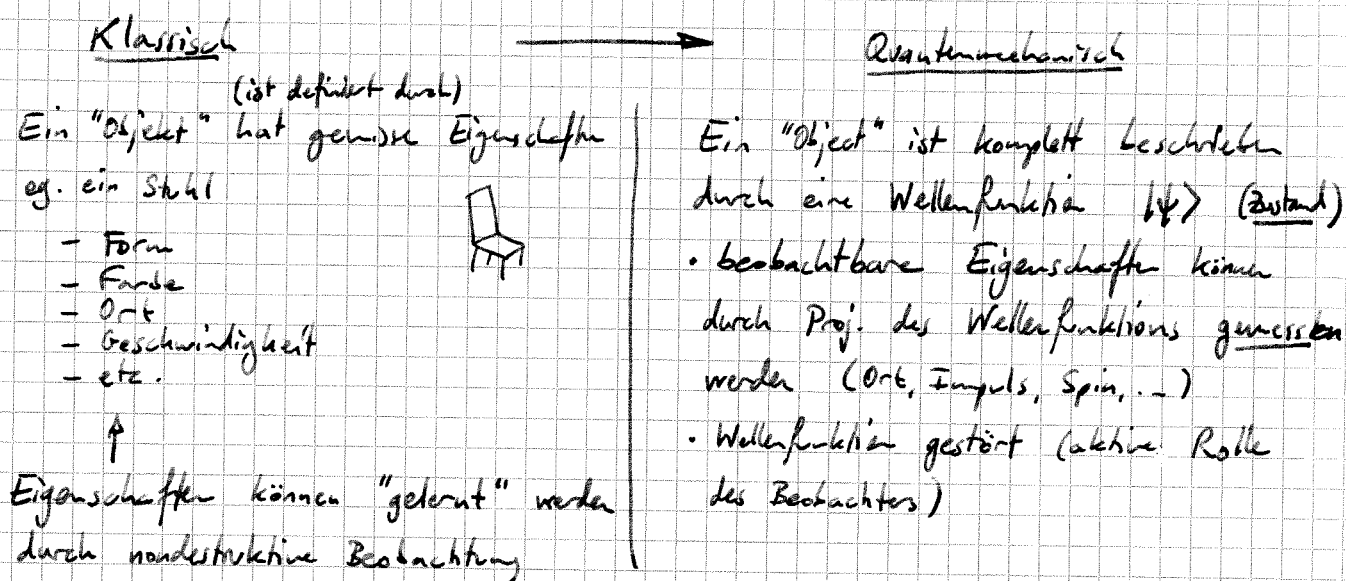 Klassisch
(ist definiert durch)
Ein "Objekt" hat gewisse Eigenschaften
eg. ein Stuhl
- Form
- Farbe
- Ort
- Geschwindigkeit
- etc.
Eigenschaften können "gelernt" werden
durch nondestruktive Beobachtung
Quantenmechanisch
Ein "Object" ist komplett beschrieben
durch eine Wellenfunktion |ψ> (Zustand)
• beobachtbare Eigenschaften können
durch Proj. des Wellenfunktions gemessen
werden (Ort, Impuls, Spin, ...)
• Wellenfunktion gestört (aktive Rolle
des Beobachters)